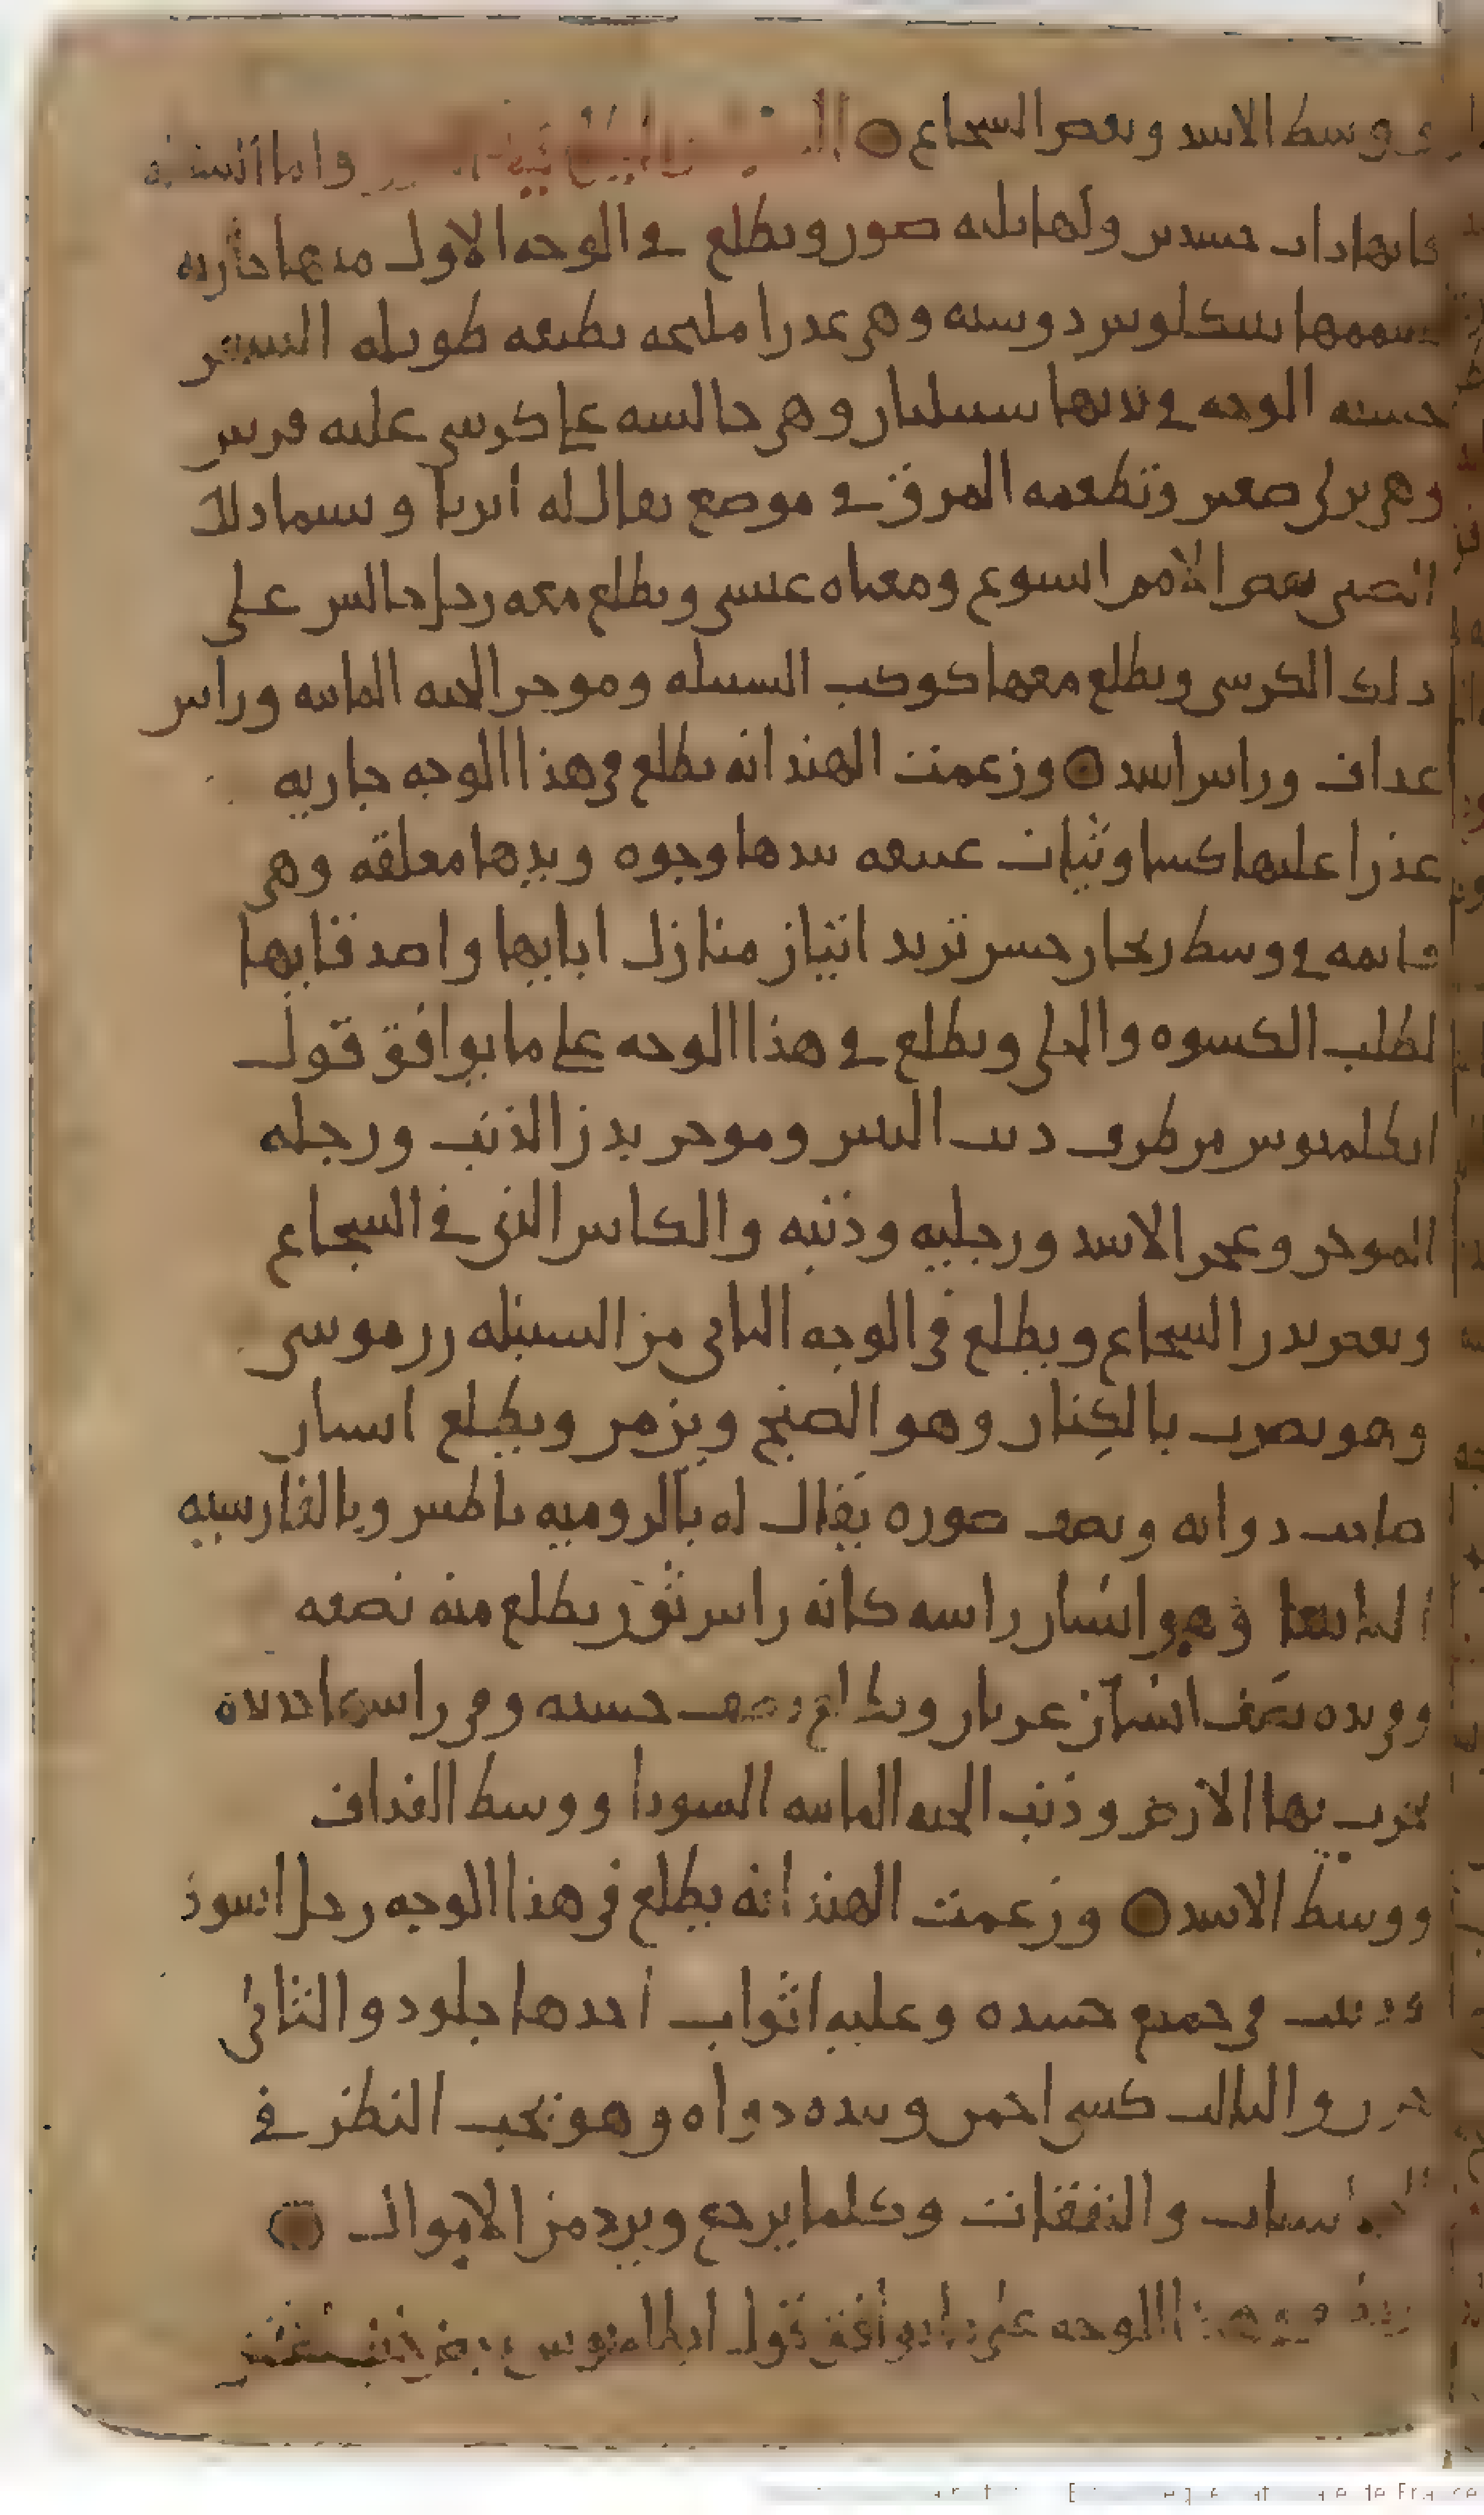 ووسط الاسد وبعض السجاع ○ واما السنبله
فانها ذات جسدين ولها ثلثه صور ويطلع في الوجه الاول منها جاريه
يسميها سكلوس دوسته وهي عذرا مليحه نظيفه طويله الشعر
حسنه الوجه في يديها سنبلتان وهي جالسه على كرسي عليه فرش
وهي تربي صغير وتطعمه المرق في موضع يقال له ابريا ويسما ذلك
الصبي بعض الامم ايسوع ومعناه عيسى ويطلع معه رجل جالس على
ذلك الكرسي ويطلع معها كوكب السنبله وموخر الحيه الماييه وراس
غداف وراس اسد ○ وزعمت الهند انه يطلع في هذا الوجه جاريه
عذرا عليها كسا وثياب عتيقه بيدها وجوه ويدها معلقه وهي
قايمه في وسط ريحان حسن تريد اتيان منازل ابايها واصدقايها
لطلب الكسوه والحلي ويطلع في هذا الوجه على ما يوافق قول
ابطلميوس من طرف ذنب التنين وموخر بدن الذئب ورجله
الموخر وعجز الاسد ورجليه وذنبه والكاس الذي في السجاع
وبعض بدن السجاع ويطلع في الوجه الثاني من السنبله رزموسى
وهو يضرب بالكنار وهو الصنج ويزمر ويطلع انسان
صاحب دوابه ونصف صوره يقال له بالروميه باطس وبالفارسيه
وهو انسان راسه كانه راس ثور يطلع منه نصفه
وفي يده نصف انسان عريان ويطلع نصف خشبه وفي راسها حديده
يحرب بها الارض وذنب الحيه الماييه السودا ووسط الغداف
ووسط الاسد ○ وزعمت الهند انه يطلع في هذا الوجه رجل اسود
قد نبت في جميع جسده وعليه اثواب احدها جلود والثاني
حرير والثالث كسى احمر وبيده دواه وهو يحب النظر في
الحسابات والنفقات وكلما يرجع ويرد من الاموال ○
ويطلع في هذا الوجه على ما يوافق قول ابطلميوس بعض ذنب